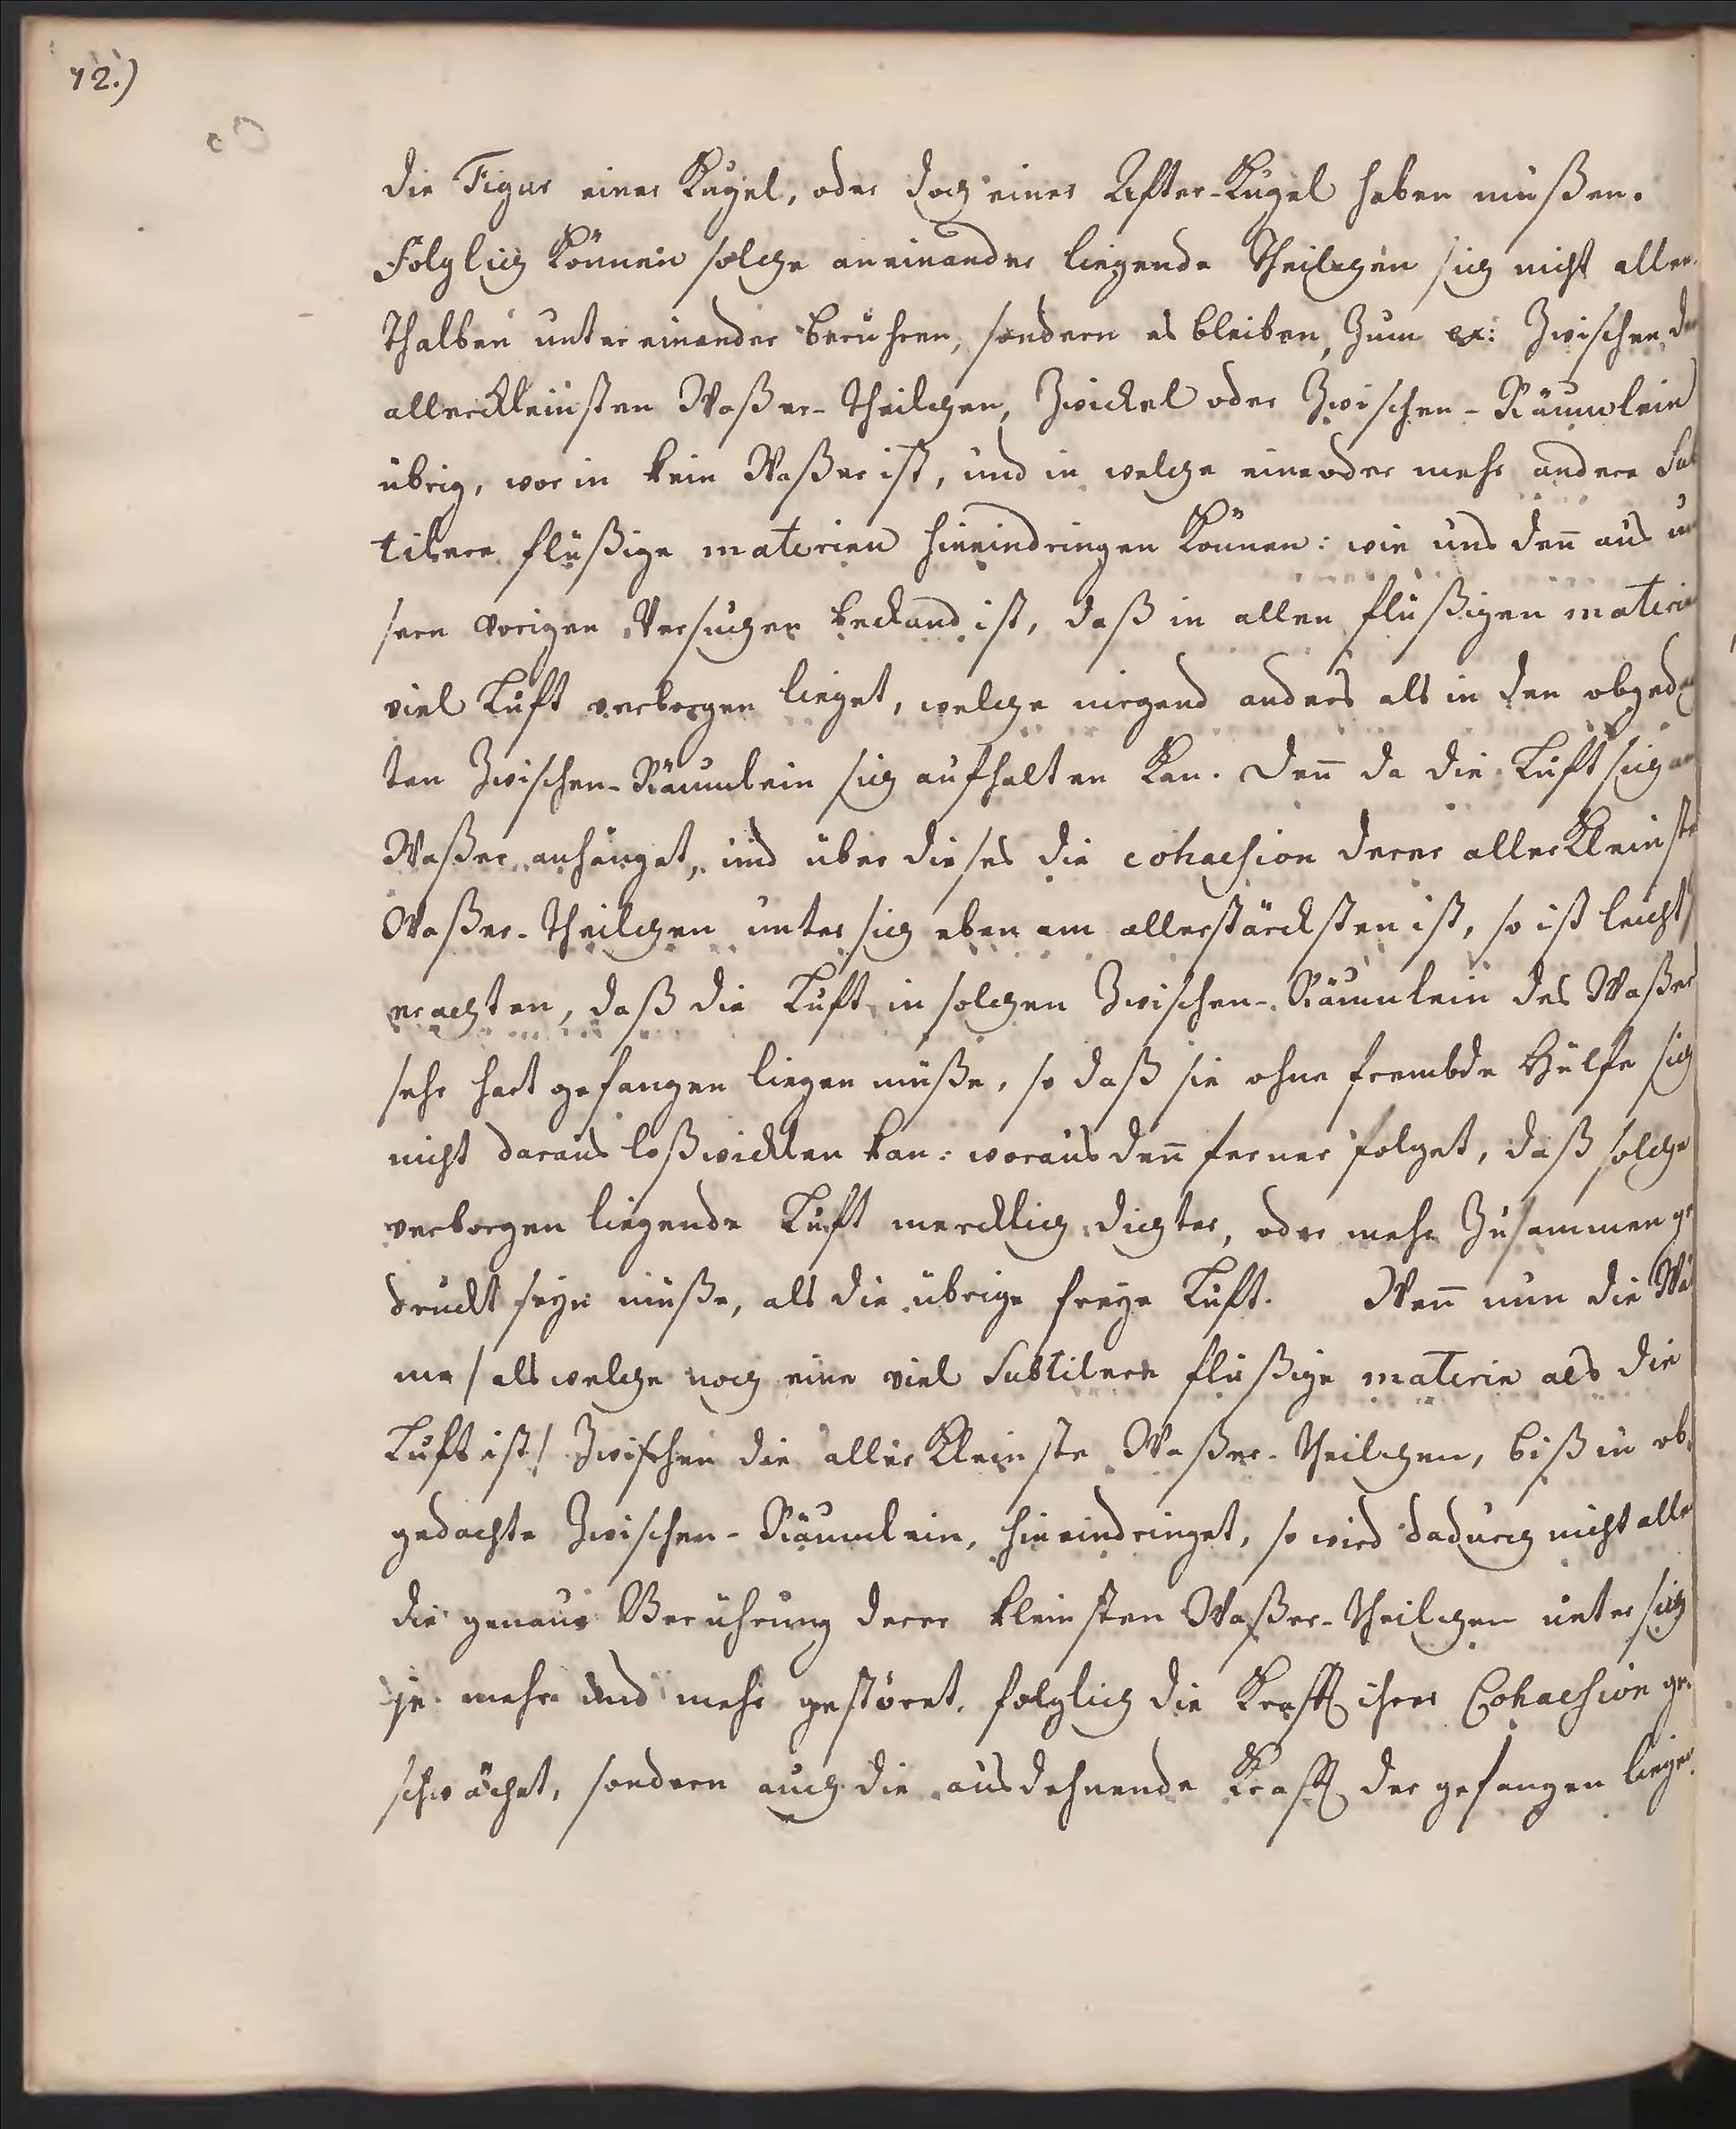 12.)
die Figur einer Kugel, oder doch einer After-Kugel haben müßen.
Folglich Können solche aneinander liegende Theilchen sich nicht allen-
thalben unter einander berühren, sondern es bleiben, Zum ex: Zwischen den
allerckleinsten Waßer-Theilchen, Zwickel oder Zwischen-Räumlein
übrig, worin kein Waßer ist, und in welche eine oder mehr andere Sub
tilere flüßige materien hineindringen Können: wie uns deñ aus un
sern vorigen Versuchen beckand ist, daß in allen flüßigen materien
viel Luft verborgen lieget, welche nirgend anders als in den obgedach
ten Zwischen-Räumlein sich aufhalten Kan. Deñ da die Luft sich an
Waßer anhänget, und über dieses die cohaesion derer allerKleinste
Waßer-Theilchen unter sich eben am allerstärcksten ist, so ist leicht
erachten, daß die Luft in solchen Zwischen-Räumlein des Waßer
sehr hart gefangen liegen müße, so daß sie ohne frembde Hülfe sich
nicht daraus loßwicklen kan: woraus deñ ferner folget, daß solche
verborgen liegende Luft mercklich dichter, oder mehr Zusammen ge
druckt seyn müße, als die übrige freye Luft. Weñ nun die Wär
me / als welche noch eine viel Subtilere flüßige materie als die
Luft ist / Zwischen die allerKleinste Waßer-Theilchen, biß in ob-
gedachte Zwischen-Räumlein, hineindringet, so wird dadurch nicht alle
die genaue Berührung derer kleinsten Waßer-Theilchen unter sich
je mehr und mehr gestöret, folglich die Krafft ihrer Cohaesion ge-
schwächet, sondern auch die ausdehnende Krafft der gefangen liegen